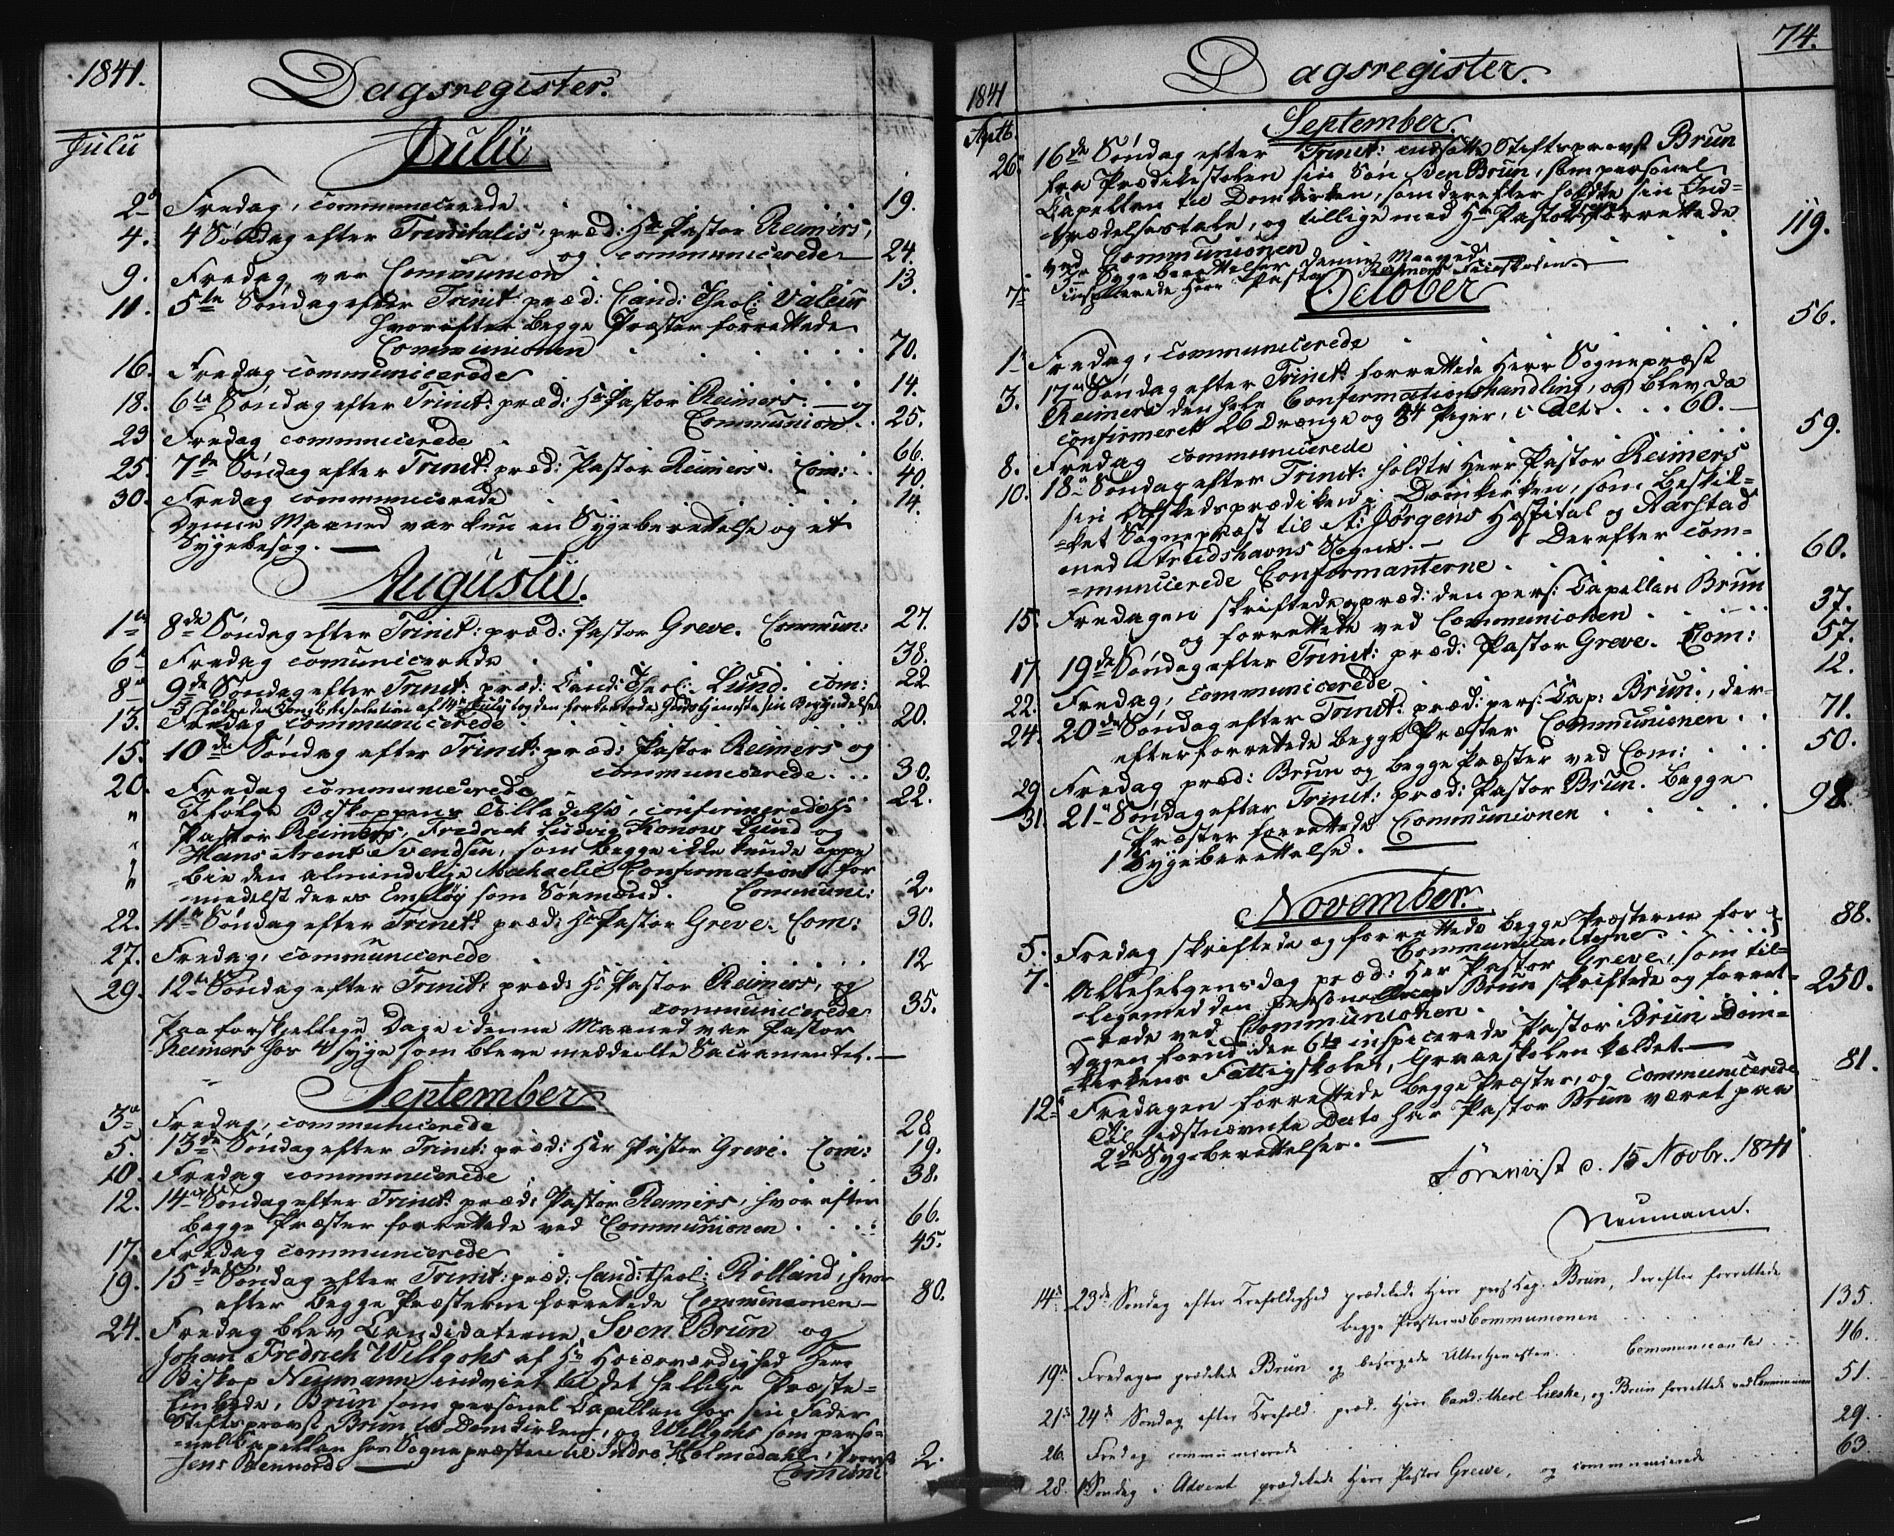 1841.
Dagsregister.
Julii
Julii
2. Fredag, communicerede 19.
4. 4 Søndag efter Trinitatis, præd: Hr Pastor Reimers,
og communicerede 24.
9. Fredag, var Communion 13.
11. 5te Søndag efter Trinit: præd: Cand: Theol: Valeur
hvorefter begge Præster forrettede
Communionen 70.
16. Fredag communicerede 14.
18. 6te Søndag efter Trinit: præd: Hr Pastor Reimers. — og
Communion 25.
23. Fredag communicerede 66.
25. 7de Søndag efter Trinit: præd: Pastor Reimers. Com: 40.
30. Fredag communicerede 14.
Denne Maaned var kun en Sygeberettelse og et
Sygebesøg. —
Augustii.
1. 8de Søndag efter Trinit: præd: Pastor Greve. Commun: 27.
6. Fredag comunicerede 38.
8. 9de Søndag efter Trinit: præd: Cand: Theol: Lund. Com: 22
13. Fredag communicerede 20.
15. 10de Søndag efter Trinit: præd: Pastor Reimers og
communicerede 30.
20. Fredag communicerede 22.
" Ifølge Biskoppens Tilladelse, confirmerede Hr
Pastor Reimers, Fredrich Ludvig Konow Lund og
" Hans Arent Svendsen, som begge ikke kunde oppe
" bie den almindelige Michaelis Confirmation, for
medelst deres som Sømænd. Communi: 2.
22. 11te Søndag efter Trinit: præd: Hr Pastor Greve. Com: 30.
27. Fredag, communicerede 12
29. 12te Søndag efter Trinit: præd: Hr Pastor Reimers, og
communicerede 35.
Paa forskjellige Dage i denne Maaned var Pastor
Reimers hos 4 syge som bleve meddeelte Sacramentet. —
September
3. Fredag, communicerede 28.
5. 13de Søndag efter Trinit: præd: Hr Pastor Greve. Com: 19.
10. Fredag communicerede 38.
12. 14de Søndag efter Trinit: præd: Pastor Reimers, hvorefter
begge Præster forrettede ved Communionen 66.
17. Fredag communicerede 45.
19. 15de Søndag efter Trinit: præd: Cand: theol: Rolland, hvor
efter begge Præsterne forrettede Communionen — 80.
24. Fredag blev Candidaterne, Sven Brun og
Johan Fredrich Willgohs af Hs Høiærværdighed Herr
Biskop Neumann indviet til det hellige Præste=
Embede, Brun som personel Capellan hos sin Fader
Stiftsprovst Brun til Domkirken, og Willgohs som perso=
=nel Capellan hos Sognepræsten til Indre Holmedahl, Provst
Jens Bennord. — Comuni 2.
74.
1841
Dagsregister.
Septb.
September.
26. 16de Søndag efter Trinit: indsatte Stiftsprovst Brun
fra Prædikestolen sin Søn Sven Brun, som personel
Capellan til Domkirken, som derefter holdte sin Ind=
=trædelsestale, og tillige med Hr Pastor Greve forrettede
ved Communionen 119.
Sygeberettelser denne Maaned.
7. inspicerede Herr Pastor Reimers Friskolen. —
October
1. Fredag, communicerede 56.
3. 17de Søndag efter Trinit: forrettede Herr Sognepræst
Reimers den hele Confirmationshandling, og blev da
confirmeret 26 Drenge og 34 Piger, i Alt 60. —
8. Fredag communicerede 59.
10. 18de Søndag efter Trinit: holdte Herr Pastor Reimers
sin Afskedsprædiken i Domkirken, som beskik=
=ket Sognepræst til St: Jørgens Hospital og Aarstad
med Sogne. — Derefter com=
=municerede Confirmanterne 60.
15. Fredagen skriftede og præd: den pers: Capellan Brun
og forrettede ved Communionen 37.
17. 19de Søndag efter Trinit: præd: Pastor Greve. Com: 57.
22. Fredag, communicerede 12.
24. 20de Søndag efter Trinit: præd: pers: Cap: Brun., der=
efter forrettede begge Præster Communionen 71.
29. Fredag præd: Brun og begge Præster ved Com: 50.
31. 21de Søndag efter Trinit: præd: Pastor Brun. Begge
Præster forrettede Communionen 98.
1 Sygeberettelse. —
November.
5. Fredag skriftede og forrettede begge Præsterne for
Communicanterne 88.
7. Allehelgensdag præd: Her Pastor Greve, som til=
=ligemed den personelle Cap Brun skriftede og forret=
=tede ved Communionen. 250.
Dagen forud den 6te inspicerede Pastor Brun Dom=
=kirkens Fattigskole, Graaeskolen kaldet. —
12. Fredagen forrettede begge Præster, og communicerede 81.
Til sidstnævnte Dato har Pastor Brun været paa
2de Sygeberettelser. —
Forevist d. 15 Novbr. 1841
Neumann.
14. 23de Søndag efter Trefoldighed prædikede Herr pers Cap. Brun, derefter forrettede
begge Præsterne Communionen 135.
19. Fredagen prædikede Brun og besørgede Altertjenesten. Communicanter 46.
21. 24de Søndag efter Trefold. præd. Herr Cand: theol , og Brun forrettede ved Communionen 51.
26. Fredag communicerede 29.
28. 1 Søndag i Advent prædikede Herr Pastor Greve, og communicerede 63